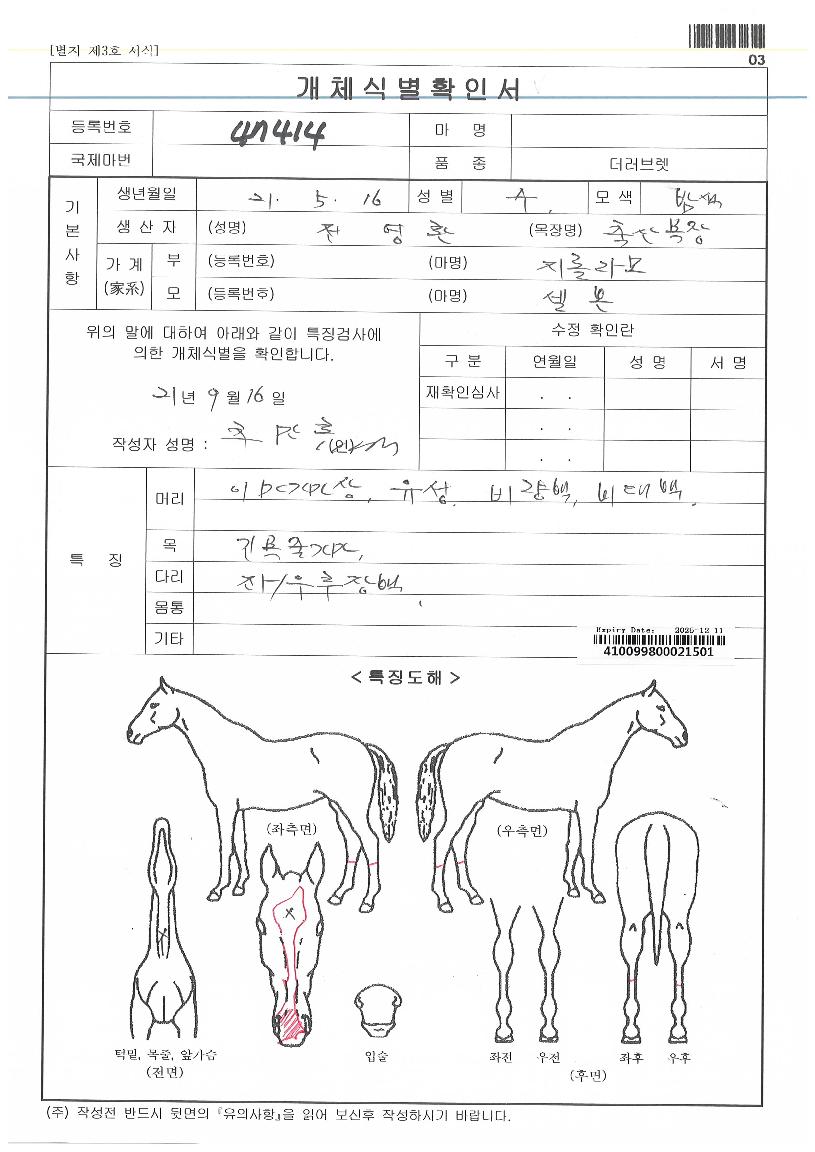 [별지 제3호 서식]
03
개체식별확인서
등록번호 47414 마 명
국제마번 품 종 더러브렛
기본사항
생년월일 21. 5. 16 성 별 수 모 색 밤색
생 산 자 (성명) 전 영 환 (목장명) 축산목장
가 계 (家系) 부 (등록번호) (마명) 지롤라모
모 (등록번호) (마명) 셀 론
위의 말에 대하여 아래와 같이 특징검사에
의한 개체식별을 확인합니다.
21년 9월 16일
작성자 성명 : (인)
수정 확인란
구 분 연월일 성 명 서 명
재확인심사 . .
. .
. .
특 징
머리 유성, 비량백, 비대백.
목
다리 좌/우후장백
몸통
기타
Expiry Date: 2025-12-11
410099800021501
< 특징도해 >
(좌측면) (우측면)
턱밑, 목줄, 앞가슴
(전면)
입술
좌전 우전 좌후 우후
(후면)
(주) 작성전 반드시 뒷면의 『유의사항』을 읽어 보신후 작성하시기 바랍니다.